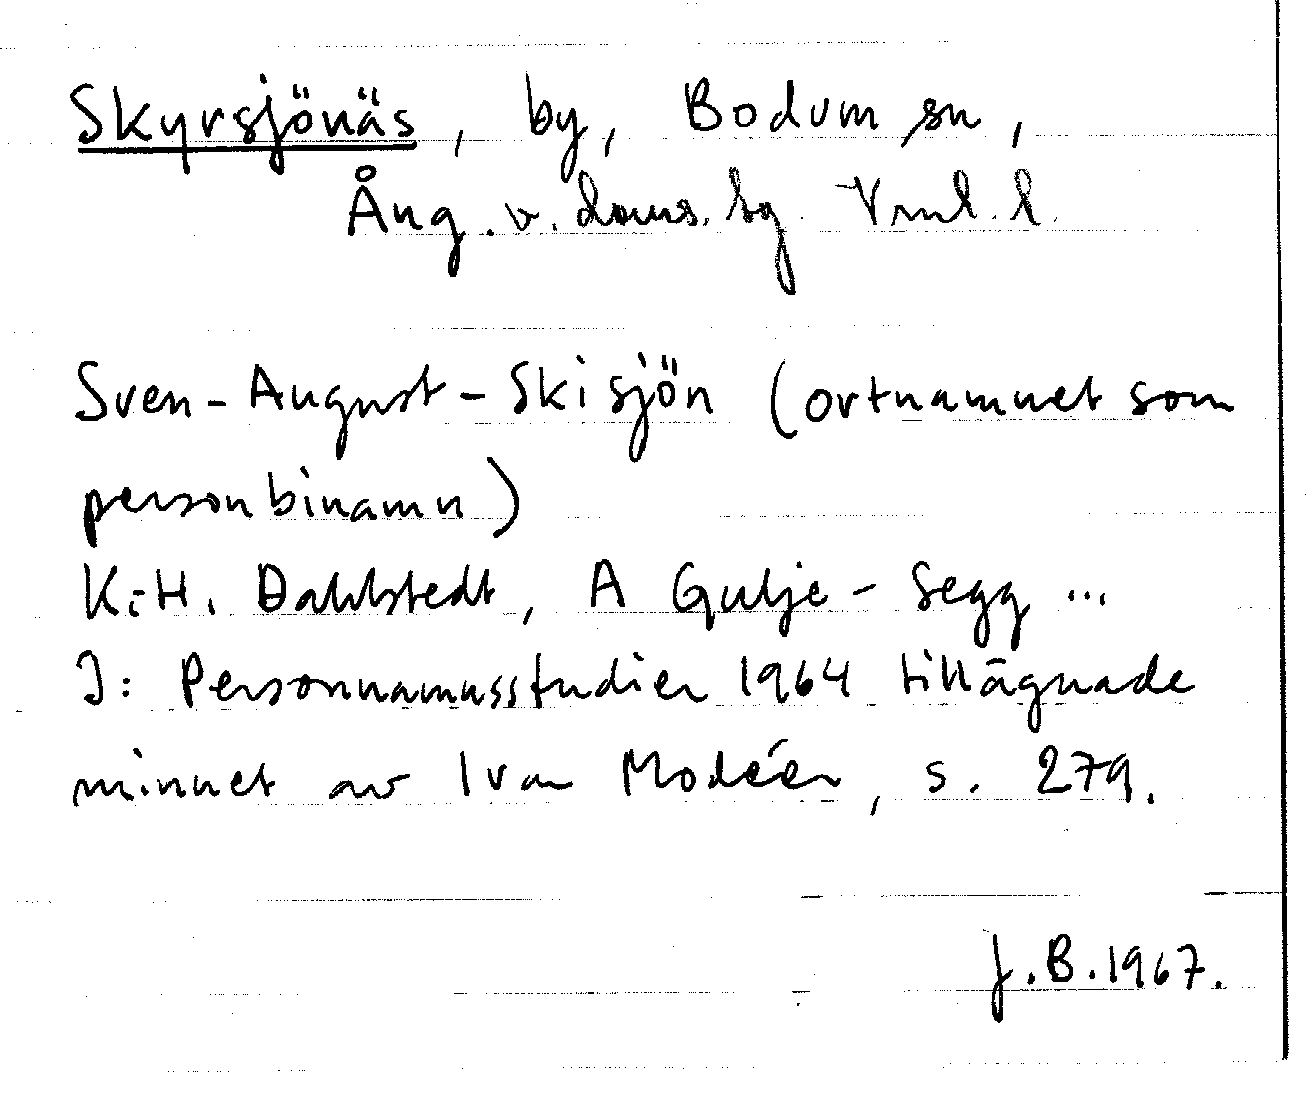 Skyrsjönäs, by, Bodum sn,
Ång. v. doms. sg Vrnl. l.
Sven-August-Skisjön (ortnamnet som
personbinamn)
K.-H. Dahlstedt, A Gulje-Segg ...
I: Personnamnsstudier 1964 tillägnade
minnet av Ivar Modéer, s. 279.
J.B. 1967.